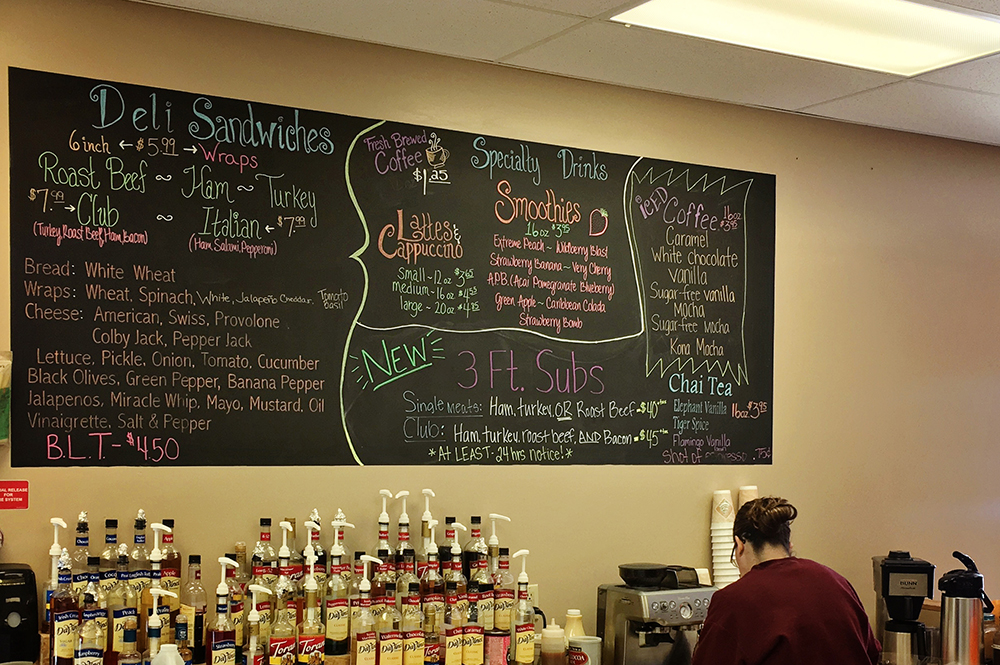 Deli Sandwiches
6 inch ← $5.99 → Wraps
Roast Beef ~ Ham ~ Turkey
$7.99 → Club ~ Italian ← $7.99
(Turkey, Roast Beef, Ham, Bacon)
(Ham, Salami, Pepperoni)
Bread: White Wheat
Wraps: Wheat, Spinach, White, Jalapeño Cheddar, Tomato basil
Cheese: American, Swiss, Provolone
Colby Jack, Pepper Jack
Lettuce, Pickle, Onion, Tomato, Cucumber
Black Olives, Green Pepper, Banana Pepper
Jalapenos, Miracle Whip, Mayo, Mustard, Oil
Vinaigrette, Salt & Pepper
B.L.T- $4.50
Fresh Brewed
Coffee
$1.25
Specialty Drinks
Lattes &
Cappuccino
Small - 12oz $3.65
medium - 16oz
large - 20oz
Smoothies
16oz $3.95
Extreme Peach ~ Wildberry Blast
Strawberry Banana ~ Very Cherry
A.P.B. (Acai Pomegranate Blueberry)
Green Apple ~ Caribbean Colada
Strawberry Bomb
iced Coffee 16oz $3.95
Caramel
White chocolate
Vanilla
Sugar-free vanilla
Mocha
Sugar-free Mocha
Kona Mocha
NEW
3 Ft. Subs
Single meats: Ham, turkey, OR Roast Beef - $40
Club: Ham, turkey, roast beef, AND Bacon - $45
*At LEAST - 24 hrs notice!*
Chai Tea
Elephant Vanilla 16oz $3.95
Tiger Spice
Flamingo Vanilla
Shot of espresso .75¢
DaVinci
Torani
Peach
Caramel
BUNN